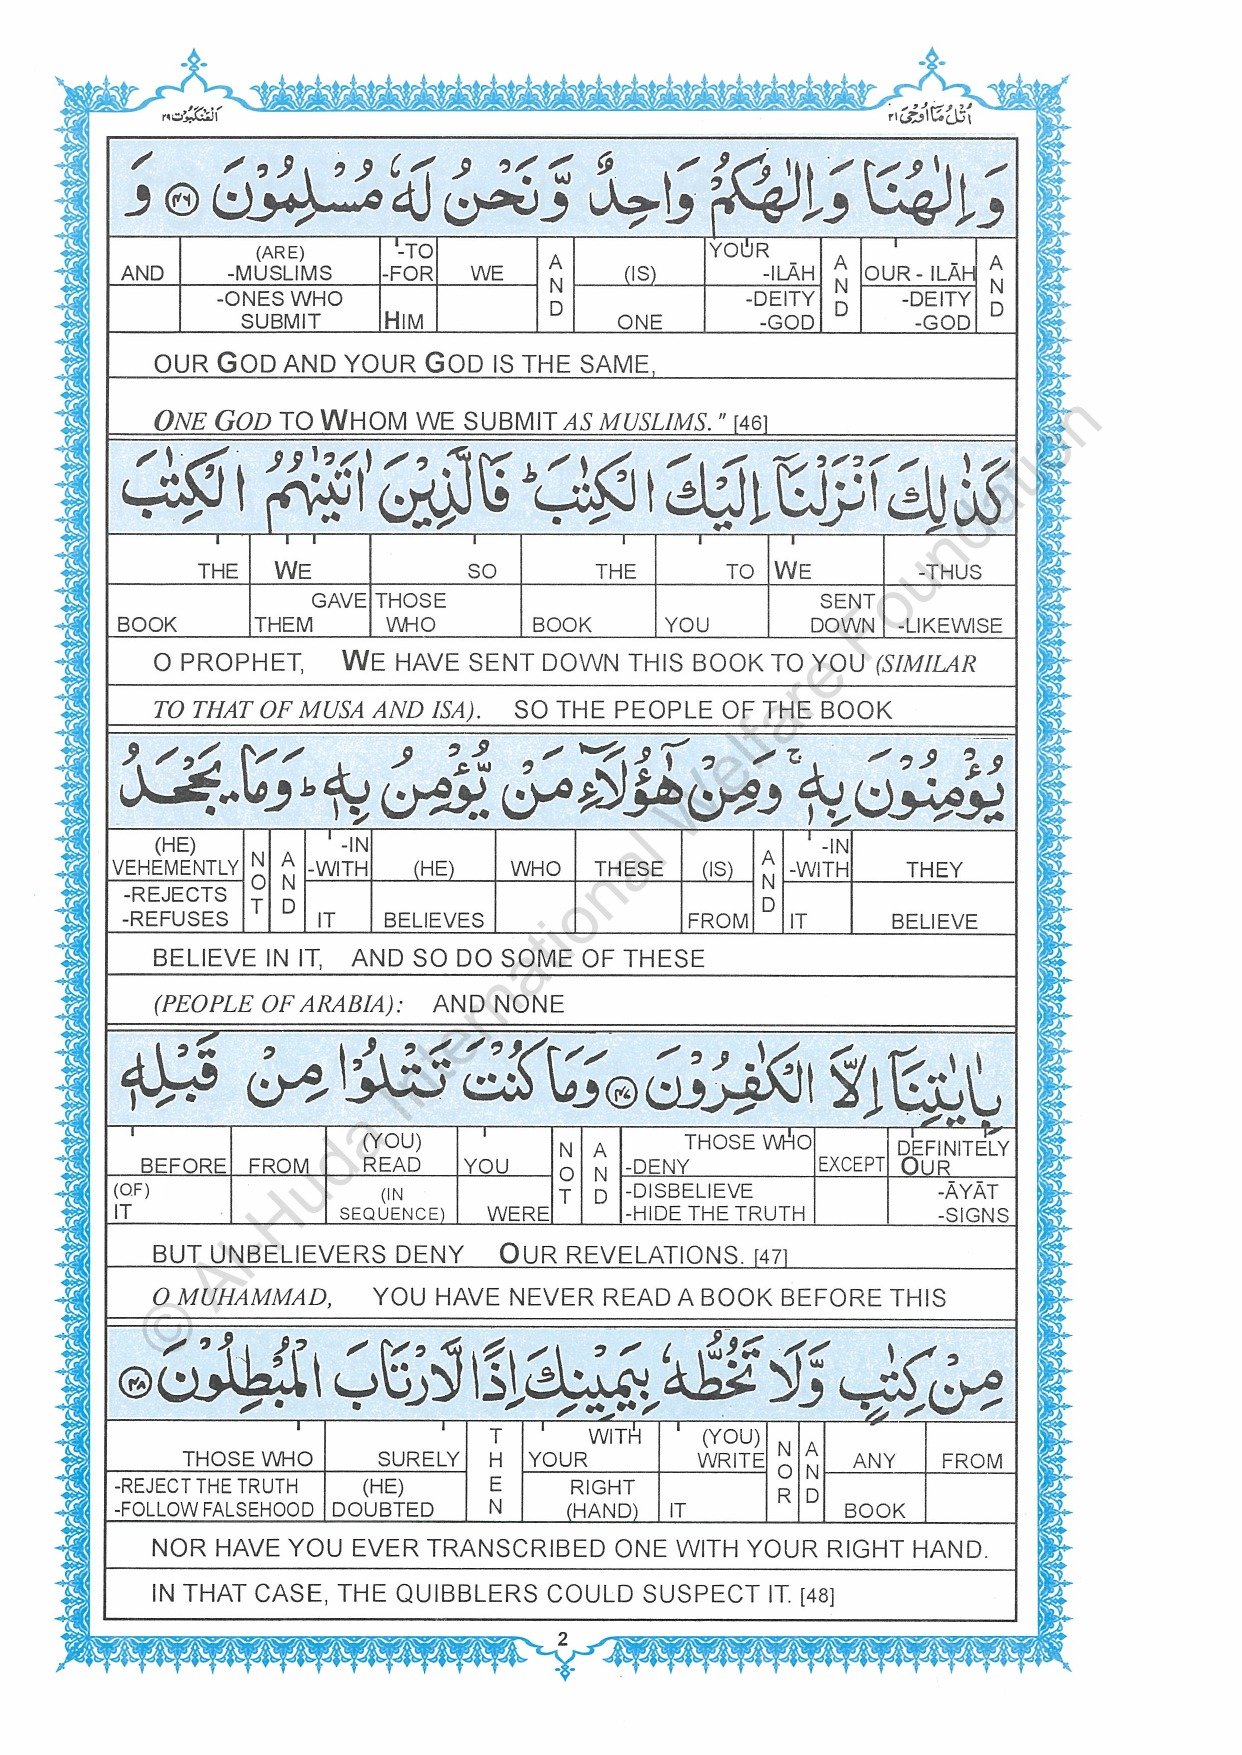 اَلْعَنْكَبُوْت ٢٩
اُتْلُ مَآ اُوْحِیَ ٢١
وَ اِلٰهُنَا وَ اِلٰهُكُمْ وَاحِدٌ وَّ نَحْنُ لَهٗ مُسْلِمُوْنَ ﴿٤٦﴾ وَ
AND (ARE) -MUSLIMS -ONES WHO SUBMIT -TO -FOR HIM WE AND (IS) ONE YOUR -ILĀH -DEITY -GOD AND OUR - ILĀH -DEITY -GOD AND
OUR GOD AND YOUR GOD IS THE SAME,
ONE GOD TO WHOM WE SUBMIT AS MUSLIMS." [46]
كَذٰلِكَ اَنْزَلْنَآ اِلَيْكَ الْكِتٰبَ ؕ فَالَّذِيْنَ اٰتَيْنٰهُمُ الْكِتٰبَ
THE BOOK WE GAVE THEM SO THOSE WHO THE BOOK TO YOU WE SENT DOWN -THUS -LIKEWISE
O PROPHET, WE HAVE SENT DOWN THIS BOOK TO YOU (SIMILAR
TO THAT OF MUSA AND ISA). SO THE PEOPLE OF THE BOOK
يُؤْمِنُوْنَ بِهٖ ۚ وَمِنْ هٰٓؤُلَآءِ مَنْ يُّؤْمِنُ بِهٖ ؕ وَمَا يَجْحَدُ
(HE) VEHEMENTLY -REJECTS -REFUSES NOT AND -IN -WITH IT (HE) BELIEVES WHO THESE (IS) FROM AND -IN -WITH IT THEY BELIEVE
BELIEVE IN IT, AND SO DO SOME OF THESE
(PEOPLE OF ARABIA): AND NONE
بِاٰيٰتِنَآ اِلَّا الْكٰفِرُوْنَ ﴿٤٧﴾ وَمَا كُنْتَ تَتْلُوْا مِنْ قَبْلِهٖ
BEFORE (OF) IT FROM (YOU) READ (IN SEQUENCE) YOU WERE NOT AND THOSE WHO -DENY -DISBELIEVE -HIDE THE TRUTH EXCEPT DEFINITELY OUR -ĀYĀT -SIGNS
BUT UNBELIEVERS DENY OUR REVELATIONS. [47]
O MUHAMMAD, YOU HAVE NEVER READ A BOOK BEFORE THIS
مِنْ كِتٰبٍ وَّلَا تَخُطُّهٗ بِيَمِيْنِكَ اِذًا لَّارْتَابَ الْمُبْطِلُوْنَ ﴿٤٨﴾
THOSE WHO -REJECT THE TRUTH -FOLLOW FALSEHOOD SURELY (HE) DOUBTED THEN WITH YOUR RIGHT (HAND) (YOU) WRITE IT NOR AND ANY BOOK FROM
NOR HAVE YOU EVER TRANSCRIBED ONE WITH YOUR RIGHT HAND.
IN THAT CASE, THE QUIBBLERS COULD SUSPECT IT. [48]
2
© Al-Huda International Welfare Foundation